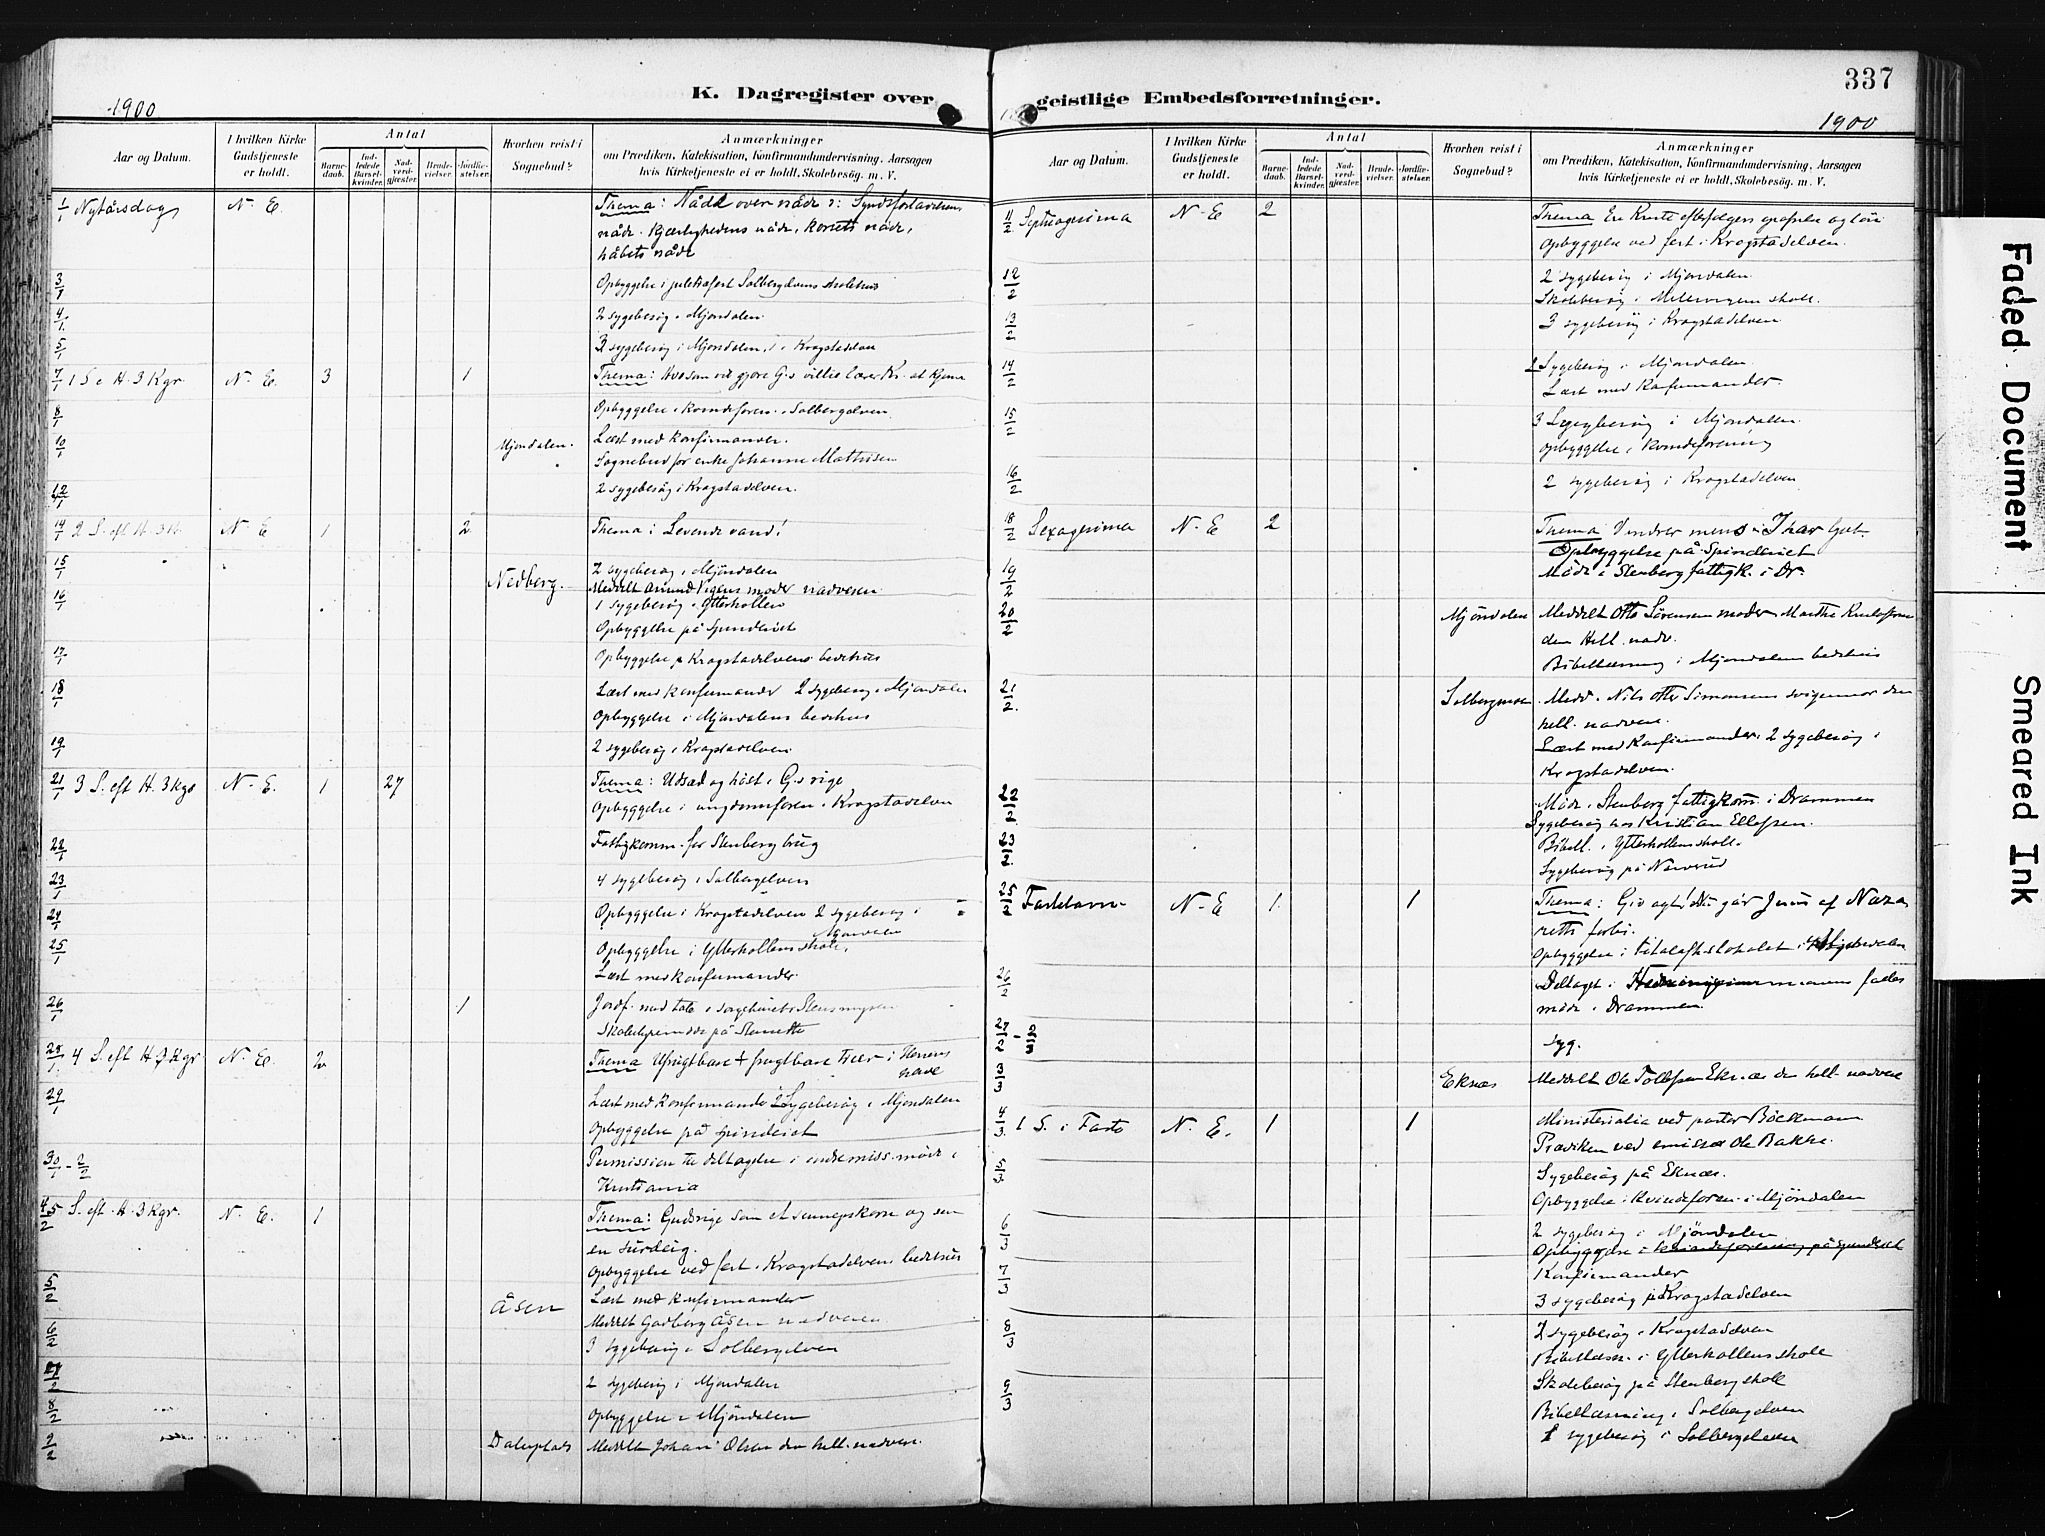 K. Dagregister over geistlige Embedsforretninger.
337
1900
1900
Aar og Datum.
I hvilken Kirke Gudstjeneste er holdt.
Antal
Barnedaab.
Indledede Barselkvinder.
Nadverdgjester.
Brudevielser.
Jordfæstelser.
Hvorhen reist i Sognebud?
Anmærkninger
om Prædiken, Katekisation, Konfirmandundervisning, Aarsagen
hvis Kirketjeneste ei er holdt, Skolebesøg. m. V.
1/1 Nytårsdag N. E. Thema: Nåde over nåde ɔ: Syndsforladelsens
nåde. Kjærlighedens nåde, korsets nåde,
håbets nåde
3/1 Opbyggelse i juletrefest Solbergelvens skolehus
4/1 2 sygebesøg i Mjøndalen.
5/1 2 sygebesøg i Mjøndalen, 1 i Krogstadelven
7/1 1 S. e. H. 3 Kgr. N. E. 3 1 Thema: Hvo som vil gjøre G.s villie lærer Kr. at kjende
8/1 Opbyggelse i kvindeforen. i Solbergelven.
10/1 Mjøndalen. Læst med konfirmander.
Sognebud for enke Johanne Mathisen
12/1 2 sygebesøg i Krogstadelven.
14/1 2 S. eft H. 3 K. N. E 1 2 Thema: Levende vand!
15/1 2 sygebesøg i Mjøndalen
Nedberg. Meddelt Amund Vegens moder nadveren
16/1 1 sygebesøg i Ytterkollen
Opbyggelse på Spinderiet
17/1 Opbyggelse på Krogstadelvens bedehus
18/1 Læst med konfirmander 2 sygebesøg i Mjøndalen
Opbyggelse i Mjøndalens bedehus
19/1 2 sygebesøg i Krogstadelven.
21/1 3 S. eft H. 3 kgr N. E. 1 27 Thema: Udsæd og høst i G.s rige
Opbyggelse i ungdomsforen. i Krogstadelven
22/1 Fattigkomm. for Stenberg brug
23/1 4 sygebesøg i Solbergelven
24/1 Opbyggelse i Krogstadelven 2 sygebesøg i
25/1 Opbyggelse i Ytterkollens skole.
Læst med konfirmander.
26/1 1 Jordf. med tale i sørgehuset Stensmyren
Skolestyremøde på
28/1 4 S. eft H. 3 Kgr. N. E. 2 Thema Ufrugtbare + frugtbare træer i Herrens
have
29/1 Læst med konfirmander 2 Sygebesøg i Mjøndalen
Opbyggelse på spinderiet
30/1 - 2/2 Permission til deltagelse i indremiss. møde i
Kristiania
4/2 5 S. eft. H. 3 Kgr. N. E. 1 Thema: Gudsrige som et sennepskorn og som
en surdeig.
Opbyggelse ved fest i Krogstadelvens bedehus
5/2 Læst med konfirmander
Åsen Meddelt Godberg Åsen nadveren
6/2 3 sygebesøg i Solbergelven
7/2 2 sygebesøg i Mjøndalen
8/2 Opbyggelse i Mjøndalen
Meddelt Johan Olsen den hell. nadvere.
Aar og Datum.
I hvilken Kirke Gudstjeneste er holdt.
Antal
Barnedaab.
Indledede Barselkvinder.
Nadverdgjester.
Brudevielser.
Jordfæstelser.
Hvorhen reist i Sognebud?
Anmærkninger
om Prædiken, Katekisation, Konfirmandundervisning, Aarsagen
hvis Kirketjeneste ei er holdt, Skolebesøg. m. V.
11/2 Septuagesima N. E 2 Thema En Kristi efterfølgers opofrelse og løn
Opbyggelse ved fest i Krogstadelven.
12/2 2 sygebesøg i Mjøndalen
Skolebesøg i skole.
13/2 3 sygebesøg i Krogstadelven
14/2 2 Sygebesøg i Mjøndalen
Læst med Konfirmander.
15/2 3 Sygebesøg i Mjøndalen
Opbyggelse i kvindeforening
16/2 2 sygebesøg i Krogstadelven
18/2 Sexagesima N. E 2 Thema
Opbyggelse på Spinderiet
19/2 Møde i Stenberg fattigk. i Dr.
20/2 Mjøndalen Meddelt Otto Sørensens moder Marthe
den Hell. nadv.
Bibellæsning i Mjøndalens bedehus
21/2. Solbergmoen Medd. Nils Otto Simonsens svigermor den
hell. nadvere.
Læst med Konfirmander. 2 sygebesøg i
Krogstadelven.
22/2. Møde i Stenberg fattigkom. i Drammen
Sygebesøg hos Kristian Ellefsen.
23/2. Bibell. i Ytterkollens skole.
Sygebesøg på Narverud
25/2 Fastelavn N. E 1 1 Thema: Giv agt! Nu går Jesus af Naza
reth forbi.
Opbyggelse i totalafh.slokalet i Mjøndalen
26/2 Deltaget i fælles
møde i Drammen
27/2 - syg.
3/3 Eknæs Meddelt Ole Tollefsen Eknæs den hell. nadvere
4/3. 1 S. i Faste N. E. 1 1 Ministerialia ved pastor Böckmann
Prædiken ved emissær Ole Bakke.
5/3. Sygebesøg på Eknæs.
Opbyggelse i kvindeforen. i Mjøndalen
6/3 2 sygebesøg i Mjøndalen
Opbyggelse i kvindeforening på spinderiet
7/3 Konfirmander
3 sygebesøg på Krogstadelven
8/3 2 sygebesøg i Krogstadelven
Bibellæsn. i Ytterkollens skole
9/3 Skolebesøg på Stenberg skole
Bibellæsning i Solbergelven
1 sygebesøg i Solbergelven
Faded Document
Smeared Ink